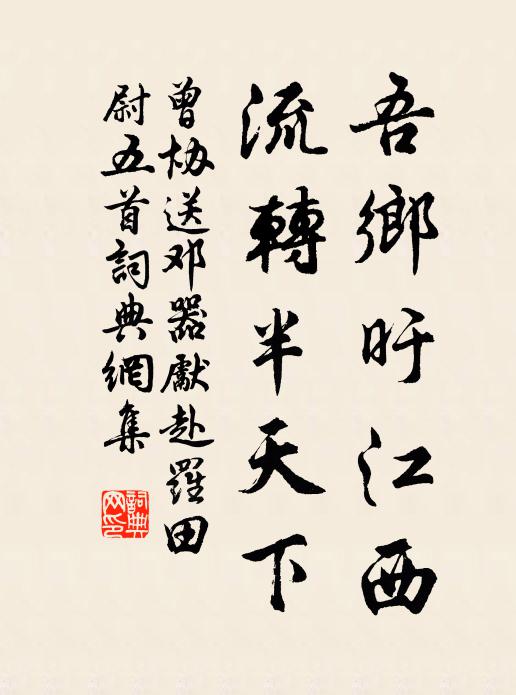 吾鄉盱江西
流轉半天下
曾协送邓器獻赴羅田
尉五首詞典網集
詞典网印